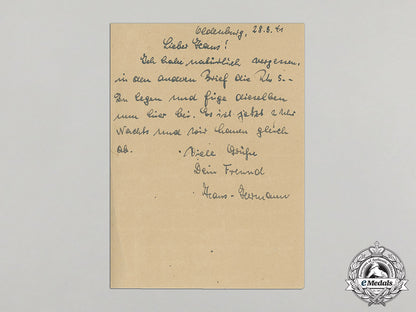 Oldenburg, 28.8.41
Lieber Hans!
Ich habe natürlich vergessen,
in den anderen Brief die
zu legen und füge dieselben
nun hier bei. Es ist jetzt 2 Uhr
Nachts und wir hauen gleich
ab.
Viele Grüße
Dein Freund
Hans-Hermann
eMedals